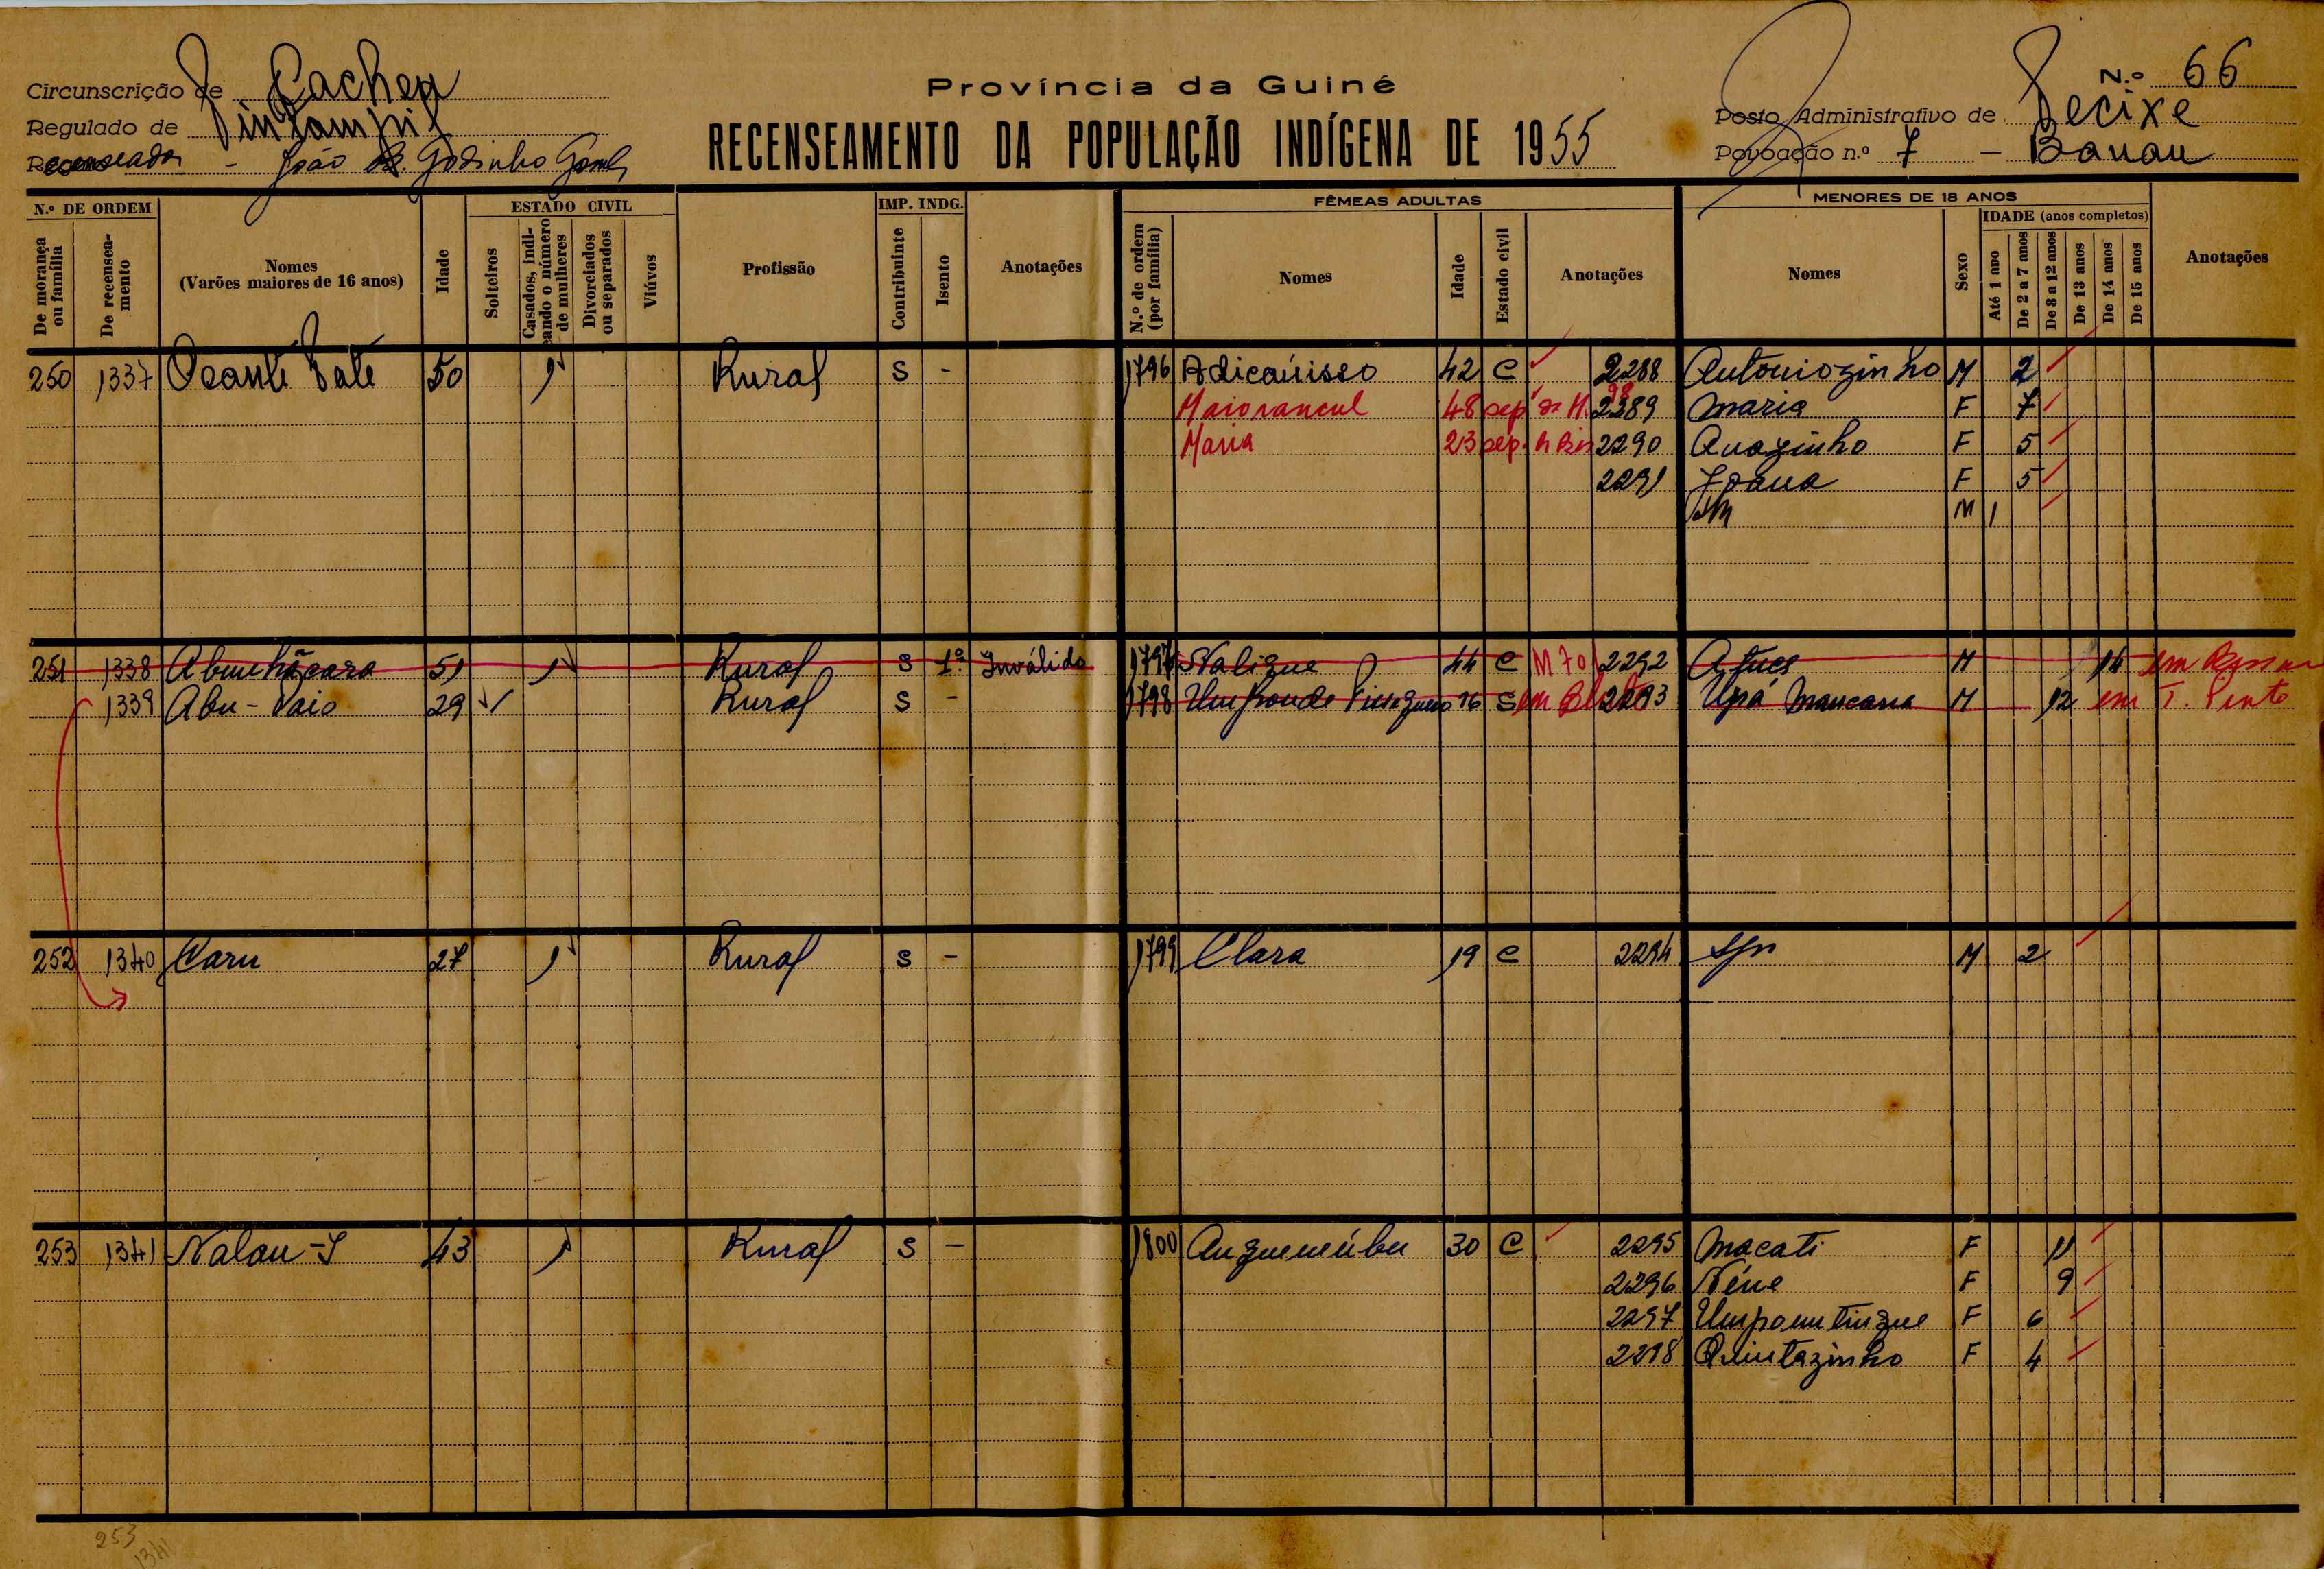 Circunscrição de Cacheu
Província da Guiné
N.º 66
Regulado de Pintampil
RECENSEAMENTO DA POPULAÇÃO INDÍGENA DE 1955
Posto Administrativo de Pecixe
Recenseador - João Godinho Gomes
Povoação n.º 7 - Banau
N.º DE ORDEM
De morança ou família
De recenseamento
Nomes (Varões maiores de 16 anos)
Idade
ESTADO CIVIL
Solteiros
Casados, indicando o número de mulheres
Divorciados ou separados
Viúvos
Profissão
IMP. INDG.
Contribuinte
Isento
Anotações
FÊMEAS ADULTAS
N.º de ordem (por família)
Nomes
Idade
Estado civil
Anotações
MENORES DE 18 ANOS
Nomes
Sexo
IDADE (anos completos)
Até 1 ano
De 2 a 7 anos
De 8 a 12 anos
De 13 anos
De 14 anos
De 15 anos
Anotações
250 1337 Ocante Pate 50 1 Rural S - 1796 Adicaúisso 42 C 2288 Antoniozinho M 2
Maiorancul 48 sep 2389 Maria F 7
Maria 23 sep. 2290 Anazinho F 5
2291 Joana F 5
M 1
251 1338 51 1 Rural S 1º Inválido 1797 Nalique 44 C M 70 2292 M 14 em Bissau
1339 Abu - Vaio 29 1 Rural S - 1798 16 S em 2293 Upá Mancana M 12 em T. Pinto
252 1340 Caru 27 1 Rural S - 1799 Clara 19 C 2294 M 2
253 1341 Nalau - I 43 1 Rural S - 1800 Anguenúbu 30 C 2295 Macati F 11
2296 Néne F 9
2297 Umpomtingue F 6
2298 Quintazinho F 4
253
1341